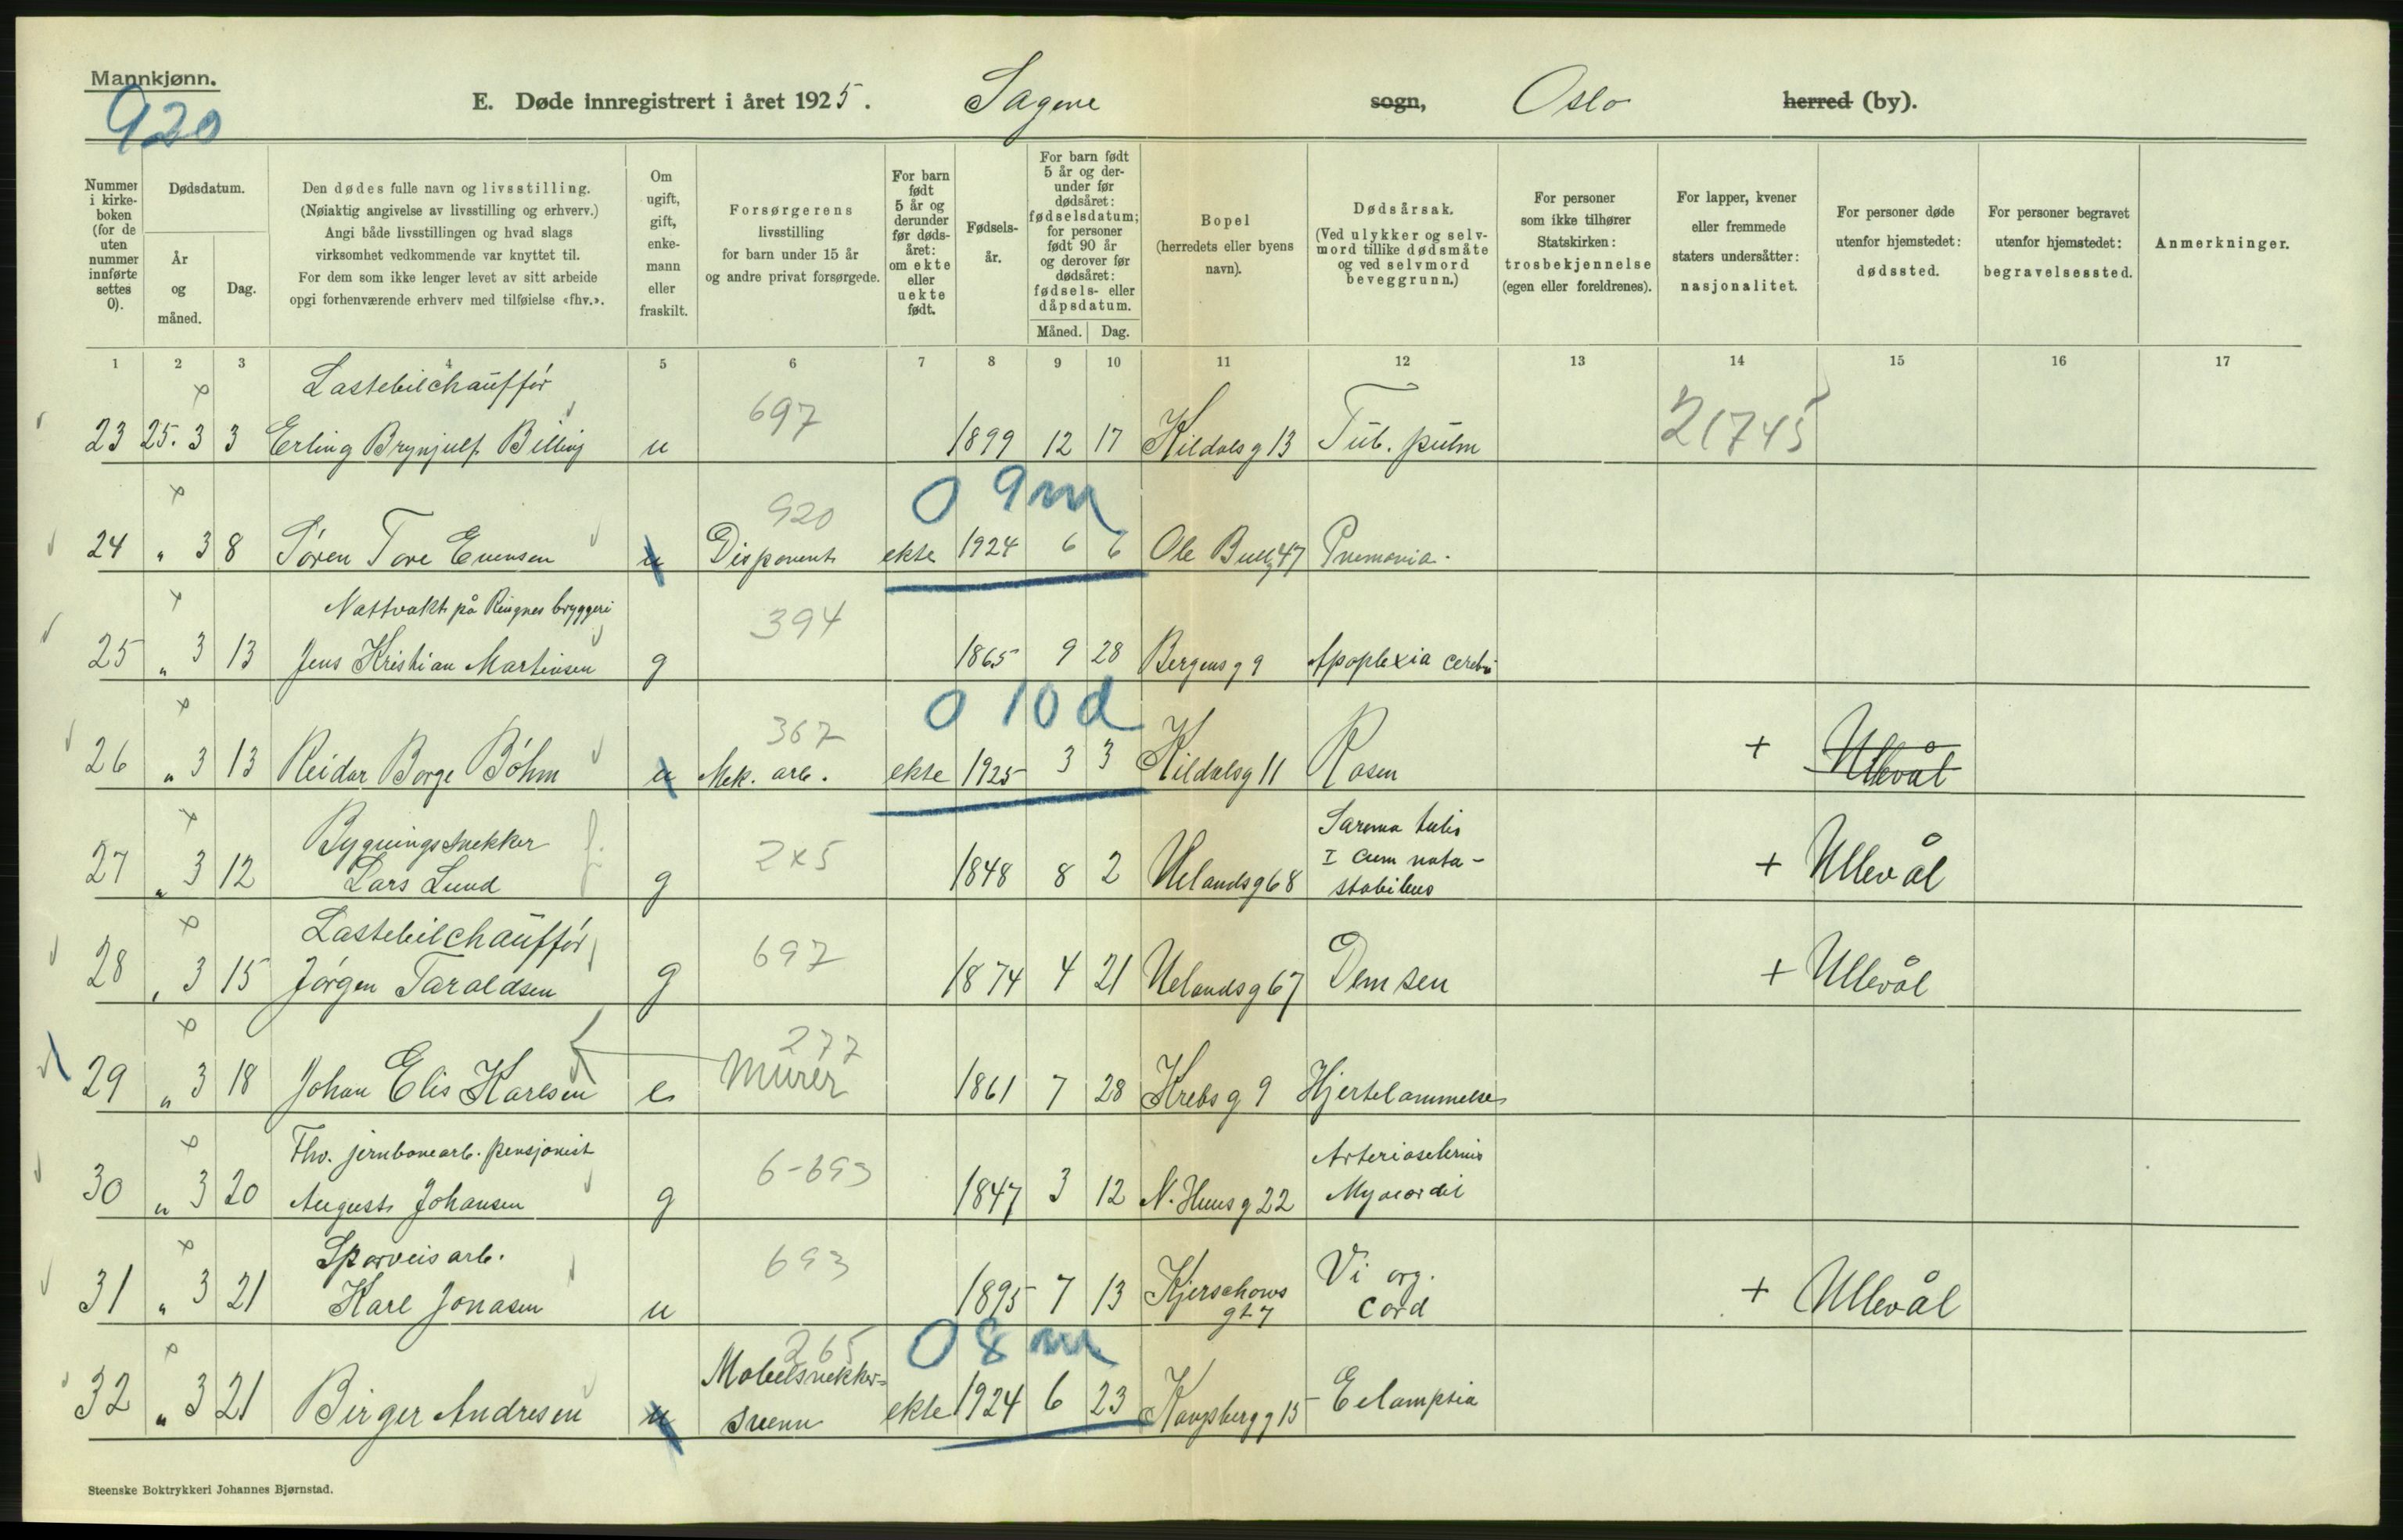 Mannkjønn.
920
E. Døde innregistrert i året 1925. Sagene sogn, Oslo herred (by).
Nummer i kirkeboken (for de uten nummer innførte settes 0).
Dødsdatum.
År og måned.
Dag.
Den dødes fulle navn og livsstilling.
(Nøiaktig angivelse av livsstilling og erhverv.)
Angi både livsstillingen og hvad slags
virksomhet vedkommende var knyttet til.
For dem som ikke lenger levet av sitt arbeide
opgi forhenværende erhverv med tilføielse «fhv.».
Om ugift, gift, enkemann eller fraskilt.
Forsørgerens
livsstilling
for barn under 15 år
og andre privat forsørgede.
For barn født 5 år og derunder før dødsåret: om ekte eller uekte født.
Fødselsår.
For barn født 5 år og derunder før dødsåret: fødselsdatum; for personer født 90 år og derover før dødsåret: fødsels- eller dåpsdatum.
Måned. Dag.
Bopel
(herredets eller byens
navn).
Dødsårsak.
(Ved ulykker og selvmord tillike dødsmåte og ved selvmord beveggrunn.)
For personer
som ikke tilhører
Statskirken:
trosbekjennelse
(egen eller foreldrenes).
For lapper, kvener
eller fremmede
staters undersåtter:
nasjonalitet.
For personer døde
utenfor hjemstedet:
dødssted.
For personer begravet
utenfor hjemstedet:
begravelsessted.
Anmerkninger.
1 2 3 4 5 6 7 8 9 10 11 12 13 14 15 16 17
Lastebilchauffør
23 25. 3 3 Erling Brynjulf Billing u 697 1899 12 17 Kildalsg 13 Tub. pulm 21745
0 9m
24 " 3 8 Søren Tore Evensen u 920 Disponent ekte 1924 6 6 Ole Bullg 47 Pnemonia.
Nattvakt på Ringnes bryggeri
25 " 3 13 Jens Kristian Martinsen g 394 1865 9 28 Bergensg 9 Apoplexia cerebri
0 10 d
26 " 3 13 Reidar Borge Böhm u 367 Mek. arb. ekte 1925 3 3 Kildalsg 11 Rosen + Ullevål
Bygningssnekker
27 " 3 12 Lars Lund g 2x5 1848 8 2 Uelandsg 68 I cum + Ullevål
Lastebilchauffør
28 " 3 15 Jørgen Taraldsen g 697 1874 4 21 Uelandsg 67 + Ullevål
29 " 3 18 Johan Elis Karlsen e 277 Murer 1861 7 28 Krebsg 9 Hjertelammelse
Fhv. jernbanearb. pensjonist
30 " 3 20 August Johansen g 6-693 1847 3 12 N. Huusg 22 Arteriosclerosis
Myocardit
Sporveisarb.
31 " 3 21 Karl Jonasen u 693 1895 7 13 Kjerschows
g 27 Vi org.
cord + Ullevål
0 8 m
32 " 3 21 Birger Andresen u 265 Møbelsnekker-
svenn ekte 1924 6 23 Kongsbergg 15 Eclampsia
Steenske Boktrykkeri Johannes Bjørnstad.